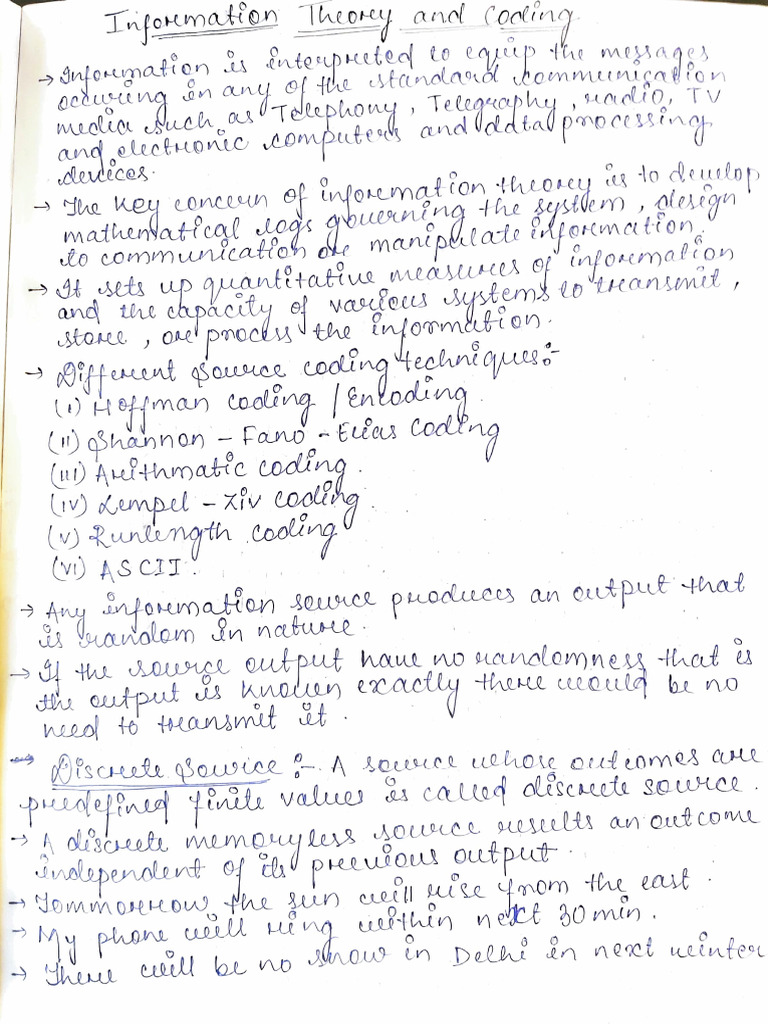 Information Theory and Coding
→ Information is interpreted to equip the messages
occuring in any of the standard communication
media such as Telephony, Telegraphy, radio, TV
and electronic computers and data processing
devices.
→ The key concern of information theory is to develop
mathematical logs governing the system, design
to communication or manipulate information.
→ It sets up quantitative measures of information
and the capacity of various systems to transmit,
store, or process the information.
→ Different source coding techniques:-
(I) Hoffman coding / Encoding
(II) Shannon - Fano - Elias coding
(III) Arithmatic coding.
(IV) Lempel - Ziv coding.
(V) Runlength coding
(VI) ASCII.
→ Any information source produces an output that
is random in nature.
→ If the source output have no randomness that is
the output is known exactly there would be no
need to transmit it.
→ Discrete Source :- A source whose outcomes are
predefined finite values is called discrete source.
→ A discrete memoryless source results an outcome
independent of its previous output.
→ Tommorrow the sun will rise from the east.
→ My phone will ring within next 30 min.
→ There will be no snow in Delhi in next winter